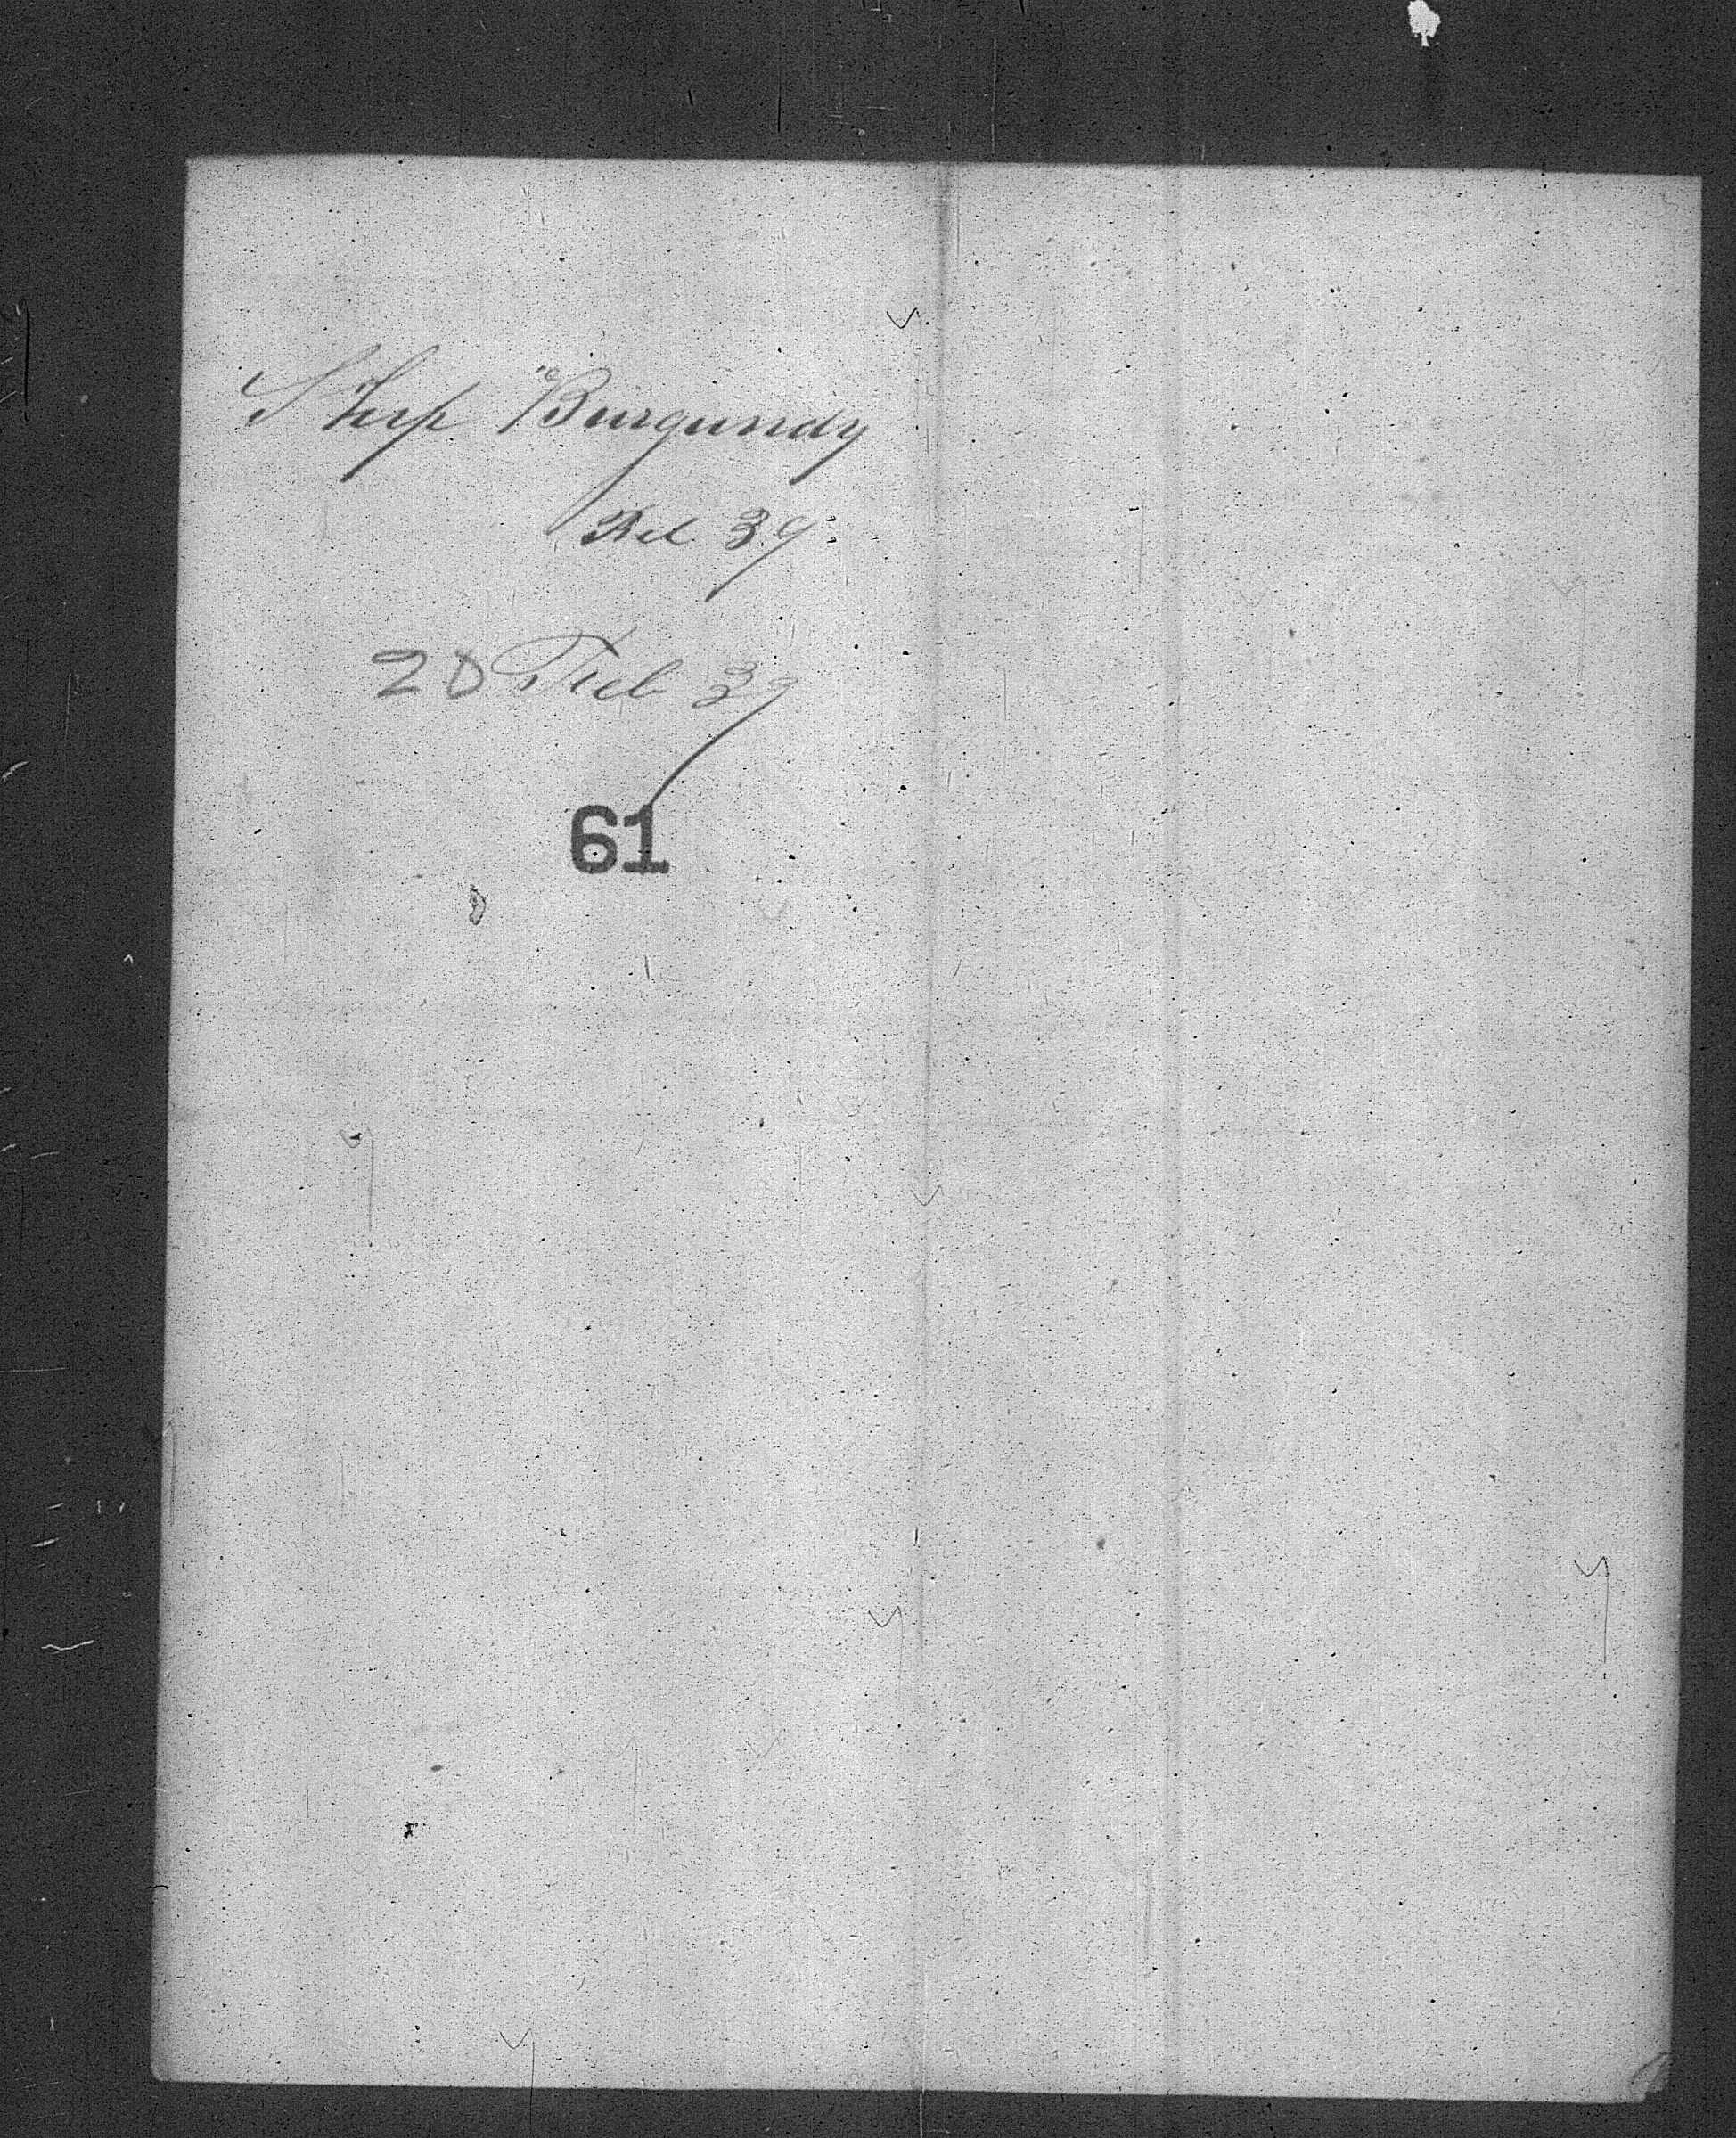 Ship "Burgundy
Rel. 39
20 Feb 39
61